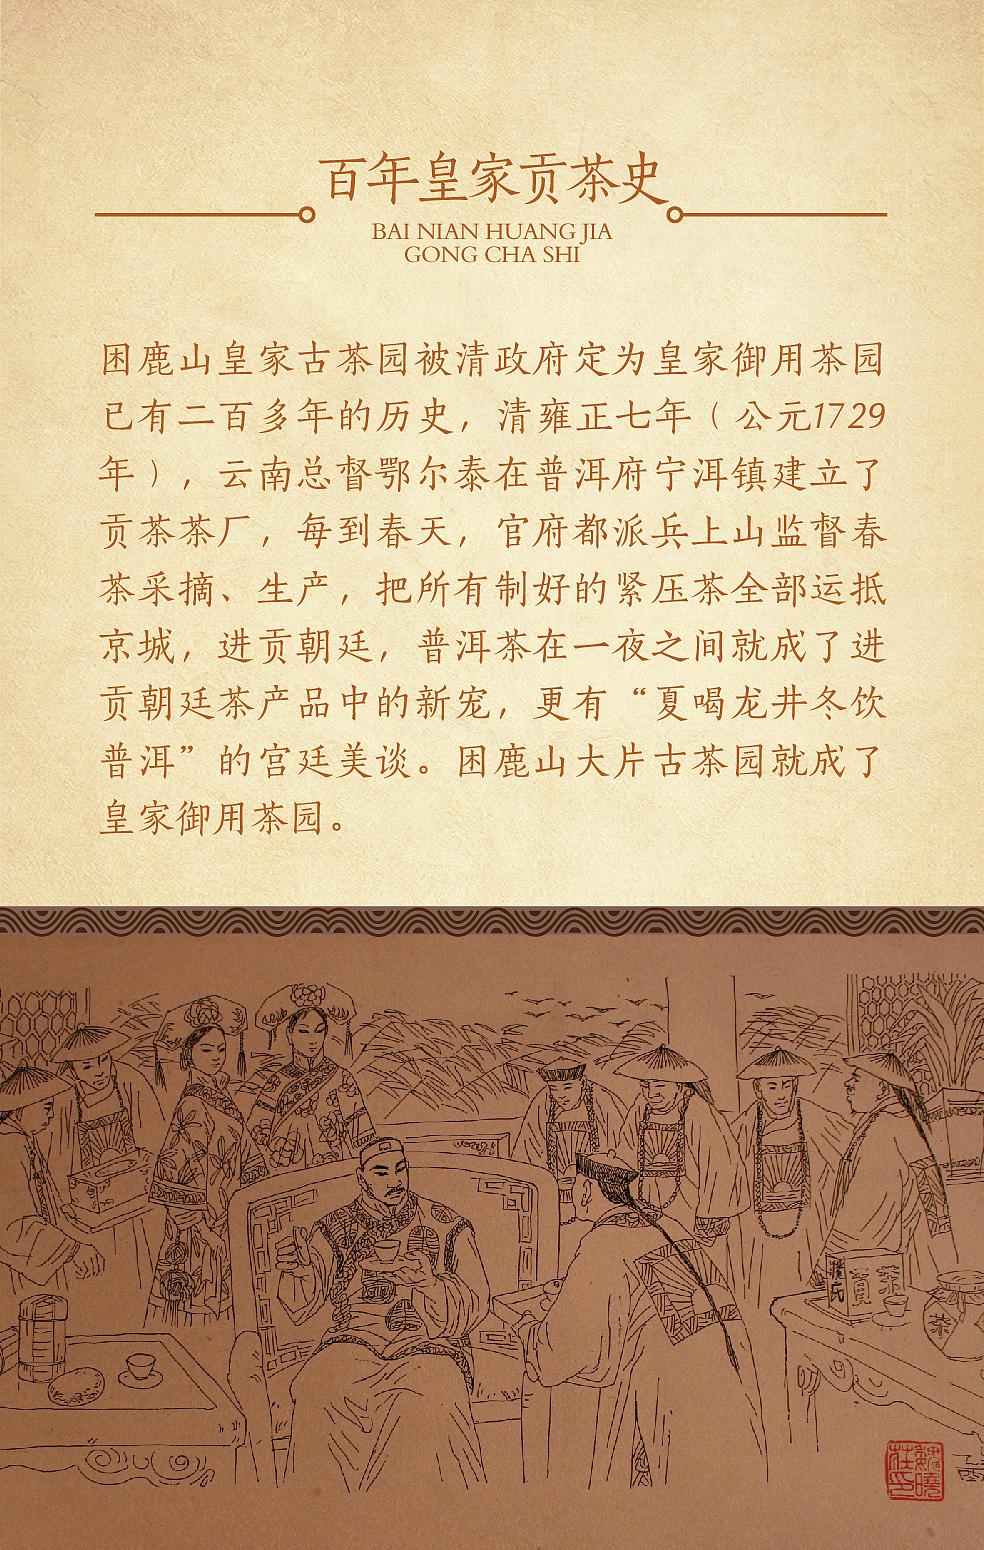 百年皇家贡茶史
BAI NIAN HUANG JIA
GONG CHA SHI
困鹿山皇家古茶园被清政府定为皇家御用茶园
已有二百多年的历史，清雍正七年（公元1729
年），云南总督鄂尔泰在普洱府宁洱镇建立了
贡茶茶厂，每到春天，官府都派兵上山监督春
茶采摘、生产，把所有制好的紧压茶全部运抵
京城，进贡朝廷，普洱茶在一夜之间就成了进
贡朝廷茶产品中的新宠，更有“夏喝龙井冬饮
普洱”的宫廷美谈。困鹿山大片古茶园就成了
皇家御用茶园。
貢茶
茶